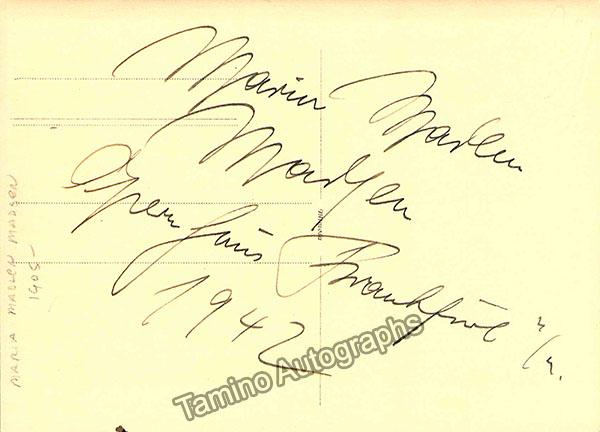 Maria Madlen
Madsen
Opernhaus Frankfurt a/M.
1942
MARIA MADLEN MADSEN
1905-
Tamino Autographs